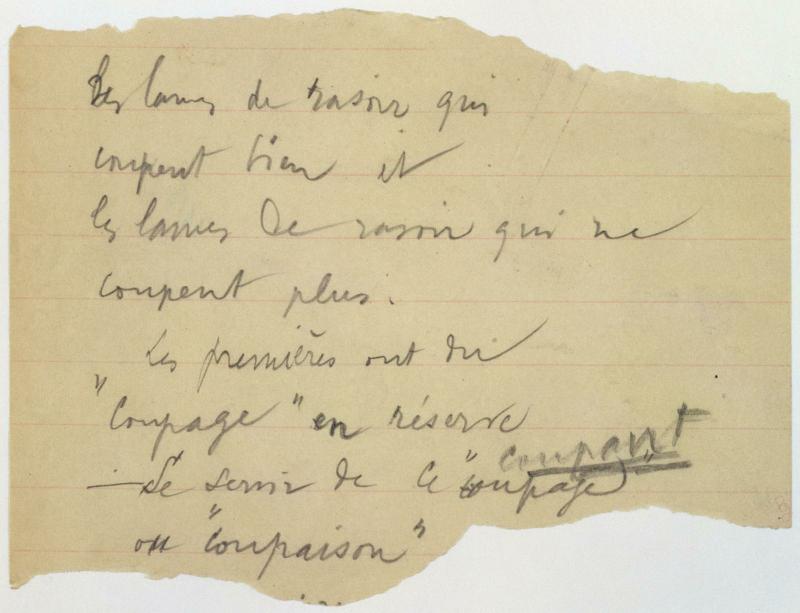 Les lames de rasoir qui
coupent bien et
les lames de rasoir qui ne
coupent plus.
Les premières ont du
"coupage" en réserve
coupant
— Se servir de ce "coupage"
ou "coupaison"